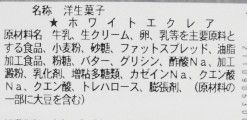 名称 洋生菓子
★ ホワイトエクレア
原材料名 牛乳、生クリーム、卵、乳等を主要原料と
する食品、小麦粉、砂糖、ファットスプレッド、油脂
加工食品、粉糖、バター、グリシン、酢酸Na、加工
澱粉、乳化剤、増粘多糖類、カゼインNa、クエン酸
Na、クエン酸、トレハロース、膨張剤、（原材料の
一部に大豆を含む）